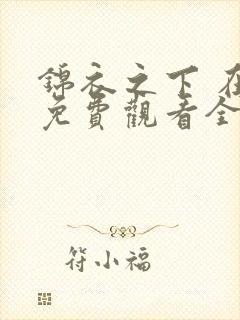 錦衣之下 在
免費觀看全
符小福